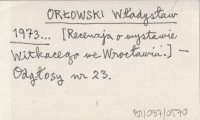 ORŁOWSKI Władysław
1973... [Recenzja o wystawie
Witkacego we Wrocławiu.] —
Odgłosy nr 23.